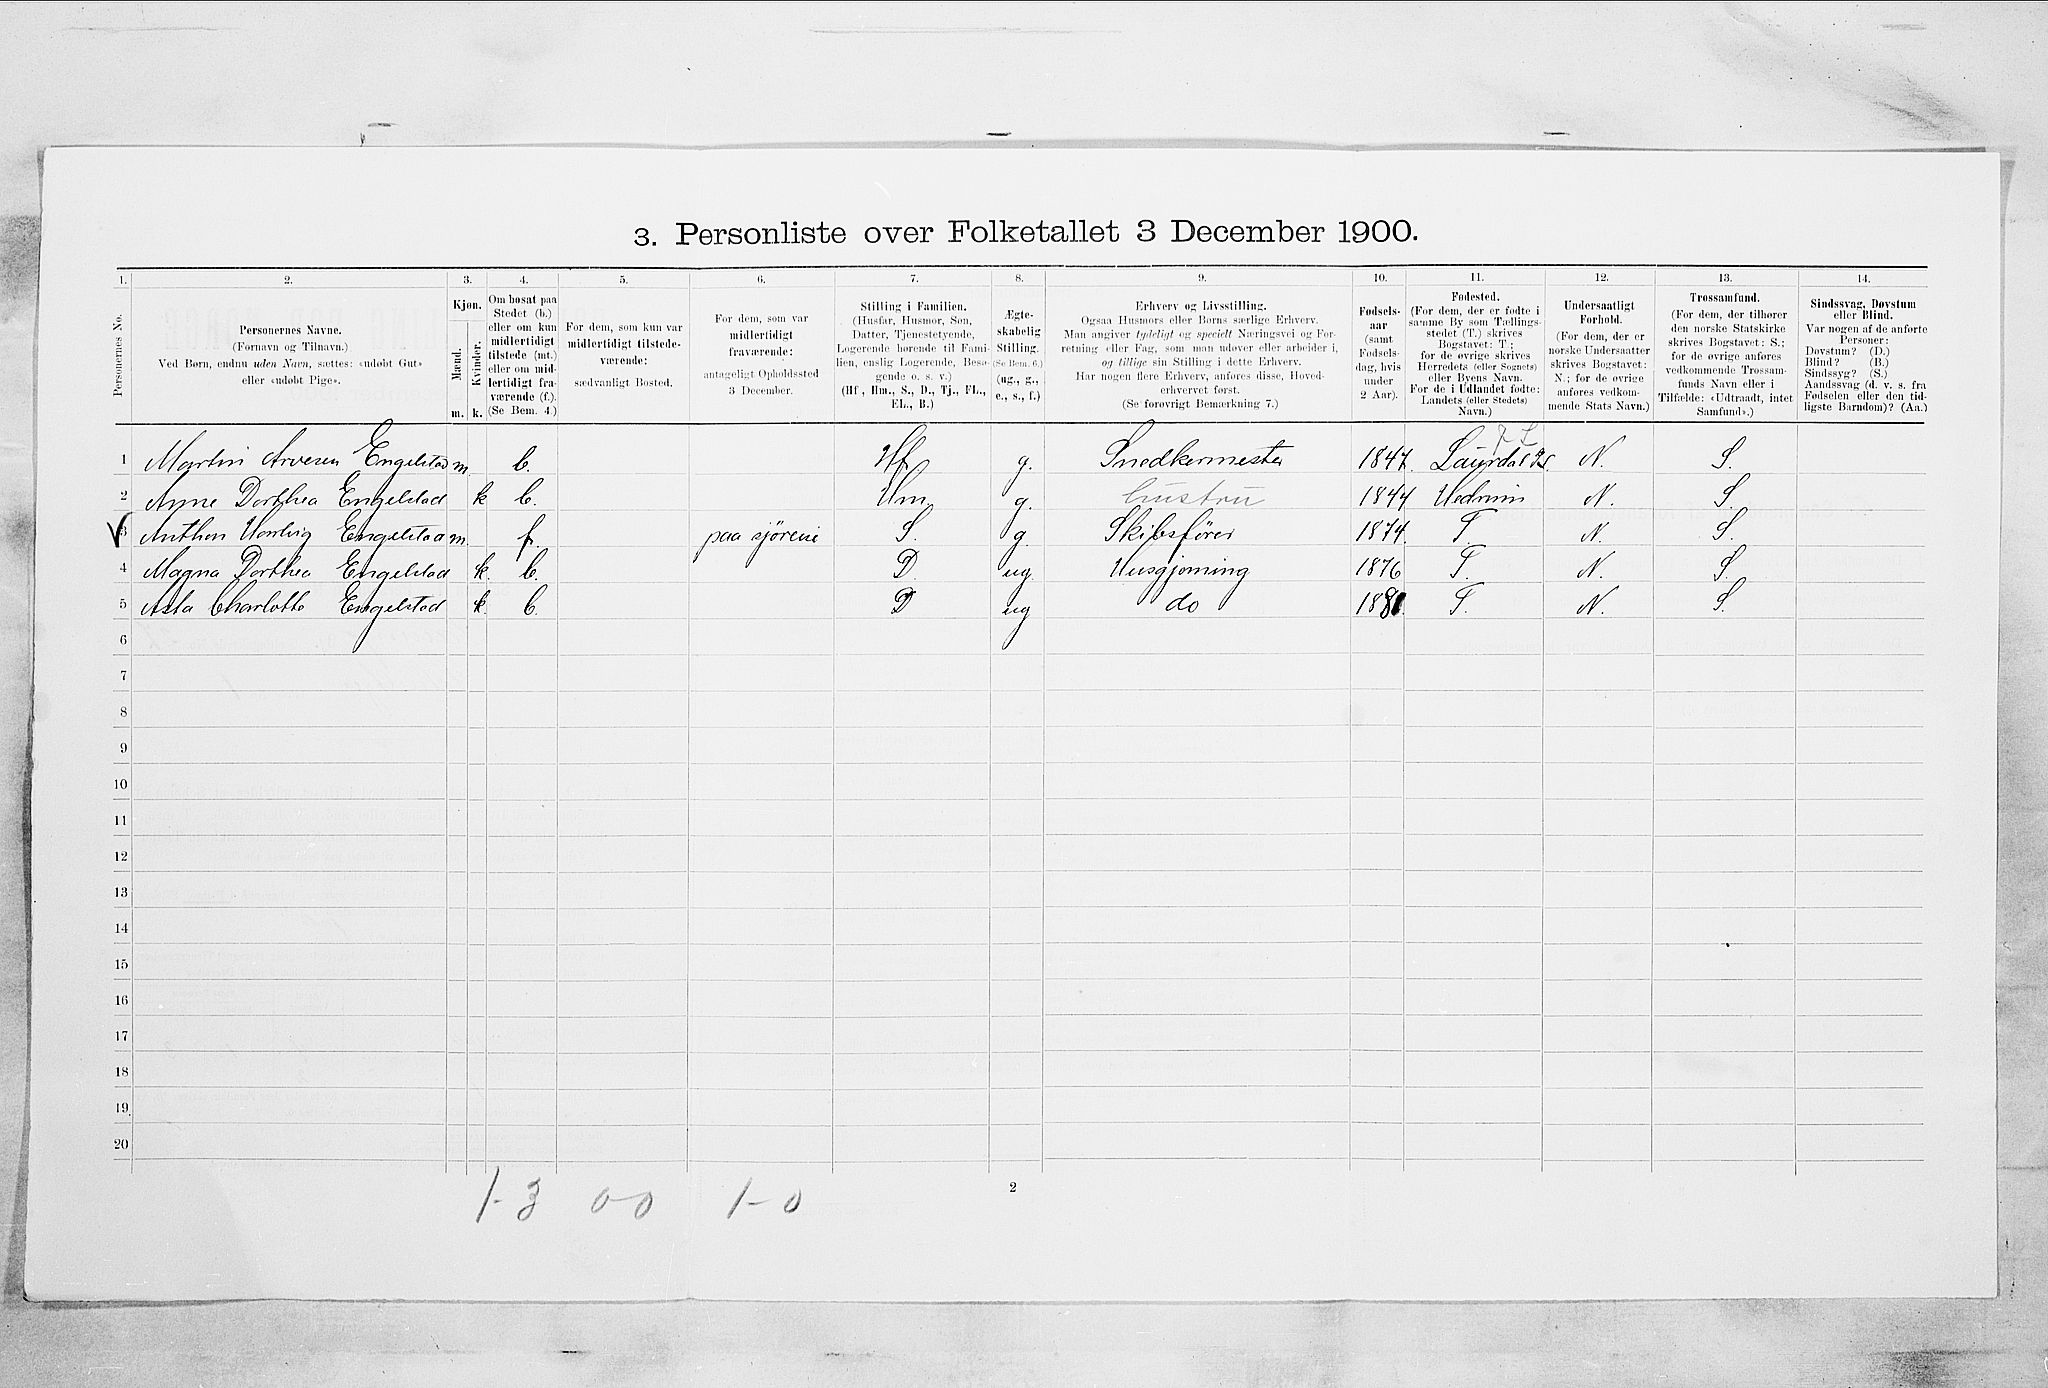 3. Personliste over Folketallet 3 December 1900.
1. 2. 3. 4. 5. 6. 7. 8. 9. 10. 11. 12. 13. 14.
Personernes No.
Personernes Navne.
(Fornavn og Tilnavn.)
Ved Børn, endnu uden Navn, sættes: «udøbt Gut»
eller «udøbt Pige».
Kjøn.
Mænd.
Kvinder.
m. k.
Om bosat paa
Stedet (b.)
eller om kun
midlertidigt
tilstede (mt.)
eller om mid-
lertidigt fra-
værende (f.).
(Se Bem. 4.)
For dem, som kun var
midlertidigt tilstede-
værende:
sædvanligt Bosted.
For dem, som var
midlertidigt
fraværende:
antageligt Opholdssted
3 December.
Stilling i Familien.
(Husfar, Husmor, Søn,
Datter, Tjenestetyende,
Logerende hørende til Fami-
lien, enslig Logerende, Besø-
gende o. s. v.)
(Hf., Hm., S., D., Tj., FL.,
EL., B.)
Ægte-
skabelig
Stilling.
(Se Bem. 6.)
(ug., g.,
e., s., f.)
Erhverv og Livsstilling.
Ogsaa Husmors eller Børns særlige Erhverv.
Man angiver tydeligt og specielt Næringsvei og For-
retning eller Fag, som man udøver eller arbeider i,
og tillige sin Stilling i dette Erhverv.
Har nogen flere Erhverv, anføres disse, Hoved-
erhvervet først.
(Se forøvrigt Bemærkning 7.)
Fødsels-
aar
(samt
Fødsels-
dag, hvis
under
2 Aar).
Fødested.
(For dem, der er fødte i
samme By som Tællings-
stedet (T.) skrives
Bogstavet: T.;
for de øvrige skrives
Herredets (eller Sognets)
eller Byens Navn.
For de i Udlandet fødte:
Landets (eller Stedets)
Navn.)
Undersaatligt
Forhold.
(For dem, der er
norske Undersaatter
skrives Bogstavet:
N.; for de øvrige
anføres vedkom-
mende Stats Navn.)
Trossamfund.
(For dem, der tilhører
den norske Statskirke
skrives Bogstavet: S.;
for de øvrige anføres
vedkommende Trossam-
funds Navn eller i
Tilfælde: «Udtraadt, intet
Samfund».)
Sindssvag, Døvstum
eller Blind.
Var nogen af de anførte
Personer:
Døvstum? (D.)
Blind? (B.)
Sindssyg? (S.)
Aandssvag (d. v. s. fra
Fødselen eller den tid-
ligste Barndom)? (Aa.)
1 Martin Arvesen Engelstad m. b. Hf g. Snedkermester 1847. N. S.
2 Anne Dorthea Engelstad k b. Hm g. hustru 1844 Hedrum N. S.
3 Anthon Engelstad m. f. paa sjøreise S. g. Skibsfører 1874. T. N. S.
4 Magna Dorthea Engelstad k. b. D. ug. Husgjerning 1876 T. N. S.
5 Asta Charlotte Engelstad k. b. D ug do 1881. T. N. S.
6
7
8
9
10
11
12
13
14
15
16
17
18
19
20
1-3 0-0 1-0
2